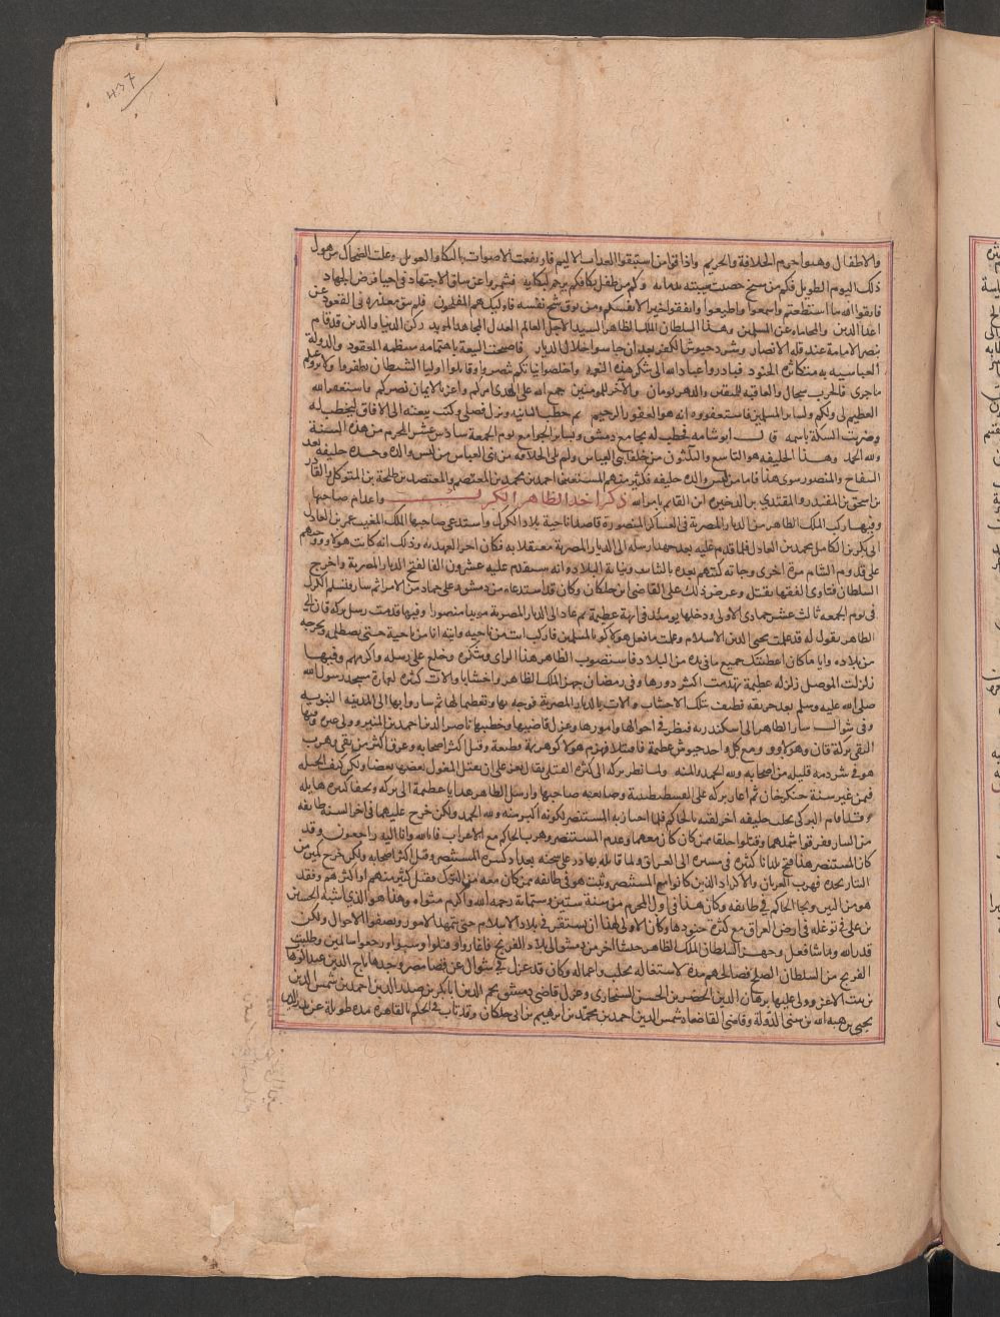 ٤٣٧
والاطفال وهتكوا حرم الخلافة والحريم واذاقوا من استبقوا العذاب الاليم فارتفعت الاصوات بالبكا والعويل وعلت الضجات من هول
ذلك اليوم الطويل فكم من شيخ خضبت شيبته بدمائه وكم من طفل بكا فلم يرحم لبكايه فشمروا عن ساق الاجتهاد في احيا فرض الجهاد
فاتقوا الله ما استطعتم واسمعوا واطيعوا وانفقوا خيرا لانفسكم ومن يوق شح نفسه فاوليك هم المفلحون فلم تبق معذرة في القعود عن
اعدا الدين والمحاماه عن المسلمين وهذا السلطان الملك الظاهر السيد الاجل العالم العدل المجاهد المويد ركن الدنيا والدين قد قام
بنصر الامامة عند قلة الانصار وشرد جيوش الكفر بعد ان جاسوا خلال الديار فاصبحت البيعة باهتمامه منتظمه العقود والدولة
العباسيه به متكاثرة الجنود فبادروا عباد الله الى شكر هذه النعمه واخلصوا نياتكم تنصروا وقاتلوا اوليا الشيطان تظفروا ولا يروعكم
ماجرى فالحرب سجال والعاقبه للمتقين والدهر يومان والاخر للمومنين جمع الله على الهدى امركم واعز بالايمان نصركم واستغفر الله
العظيم لي ولكم ولساير المسلمين فاستغفروه انه هو الغفور الرحيم ثم خطب الثانيه ونزل فصلى وكتب ببيعته الى الافاق ليخطب له
وضربت السكة باسمه قال ابو شامه فخطب له بجامع دمشق وساير الجوامع يوم الجمعة سادس عشر المحرم من هذه السنة
ولله الحمد وهذا الخليفه هو التاسع والثلثون من خلفا بني العباس ولم يلي الخلافه من بني العباس من ليس والده وجده خليفه بعد
السفاح والمنصور سوى هذا فاما من ليس والده خليفه فكثير منهم المستعين احمد بن محمد بن المعتصم والمعتضد بن طلحة بن المتوكل والقادر
بن اسحق بن المقتدر والمقتدي بن الدخيره ابن القايم بامر الله ذكر اخذ الظاهر الكرك واعدام صاحبها
وفيها ركب الملك الظاهر من الديار المصرية في العساكر المنصورة قاصدا ناحية بلاد الكرك واستدعى صاحبها الملك المغيث عمر بن العادل
ابي بكر بن الكامل محمد بن العادل فلما قدم عليه بعد جهد ارسله الى الديار المصرية معتقلا به فكان اخر العهد به وذلك انه كاتب هولاوو وحثهم
على قدوم الشام مرة اخرى وجاته كتبهم بعده بالثبات ونيابة البلاد وانه سيقدم عليه عشرون الفا لفتح الديار المصرية واخرج
السلطان فتاوى الفقها بقتله وعرض ذلك على القاضي ابن خلكان وكان قد استدعاه من دمشق وعلى جماعه من الامرا ثم سار فتسلم الكرك
في يوم الجمعه ثالث عشر جمادى الاولى ودخلها يوميذ في ابهة عظيمة ثم عاد الى الديار المصرية مويدا منصورا وفيها قدمت رسل بركه قان الى
الظاهر يقول له قد علمت محبتي لدين الاسلام وعلمت ما فعل هولاكو بالمسلمين فاركب انت من ناحيه واتيه انا من ناحية حتى نصطلمه ونخرجه
من بلاده وايا ما كان اعطيتك جميع ما في يده من البلاد فاستصوب الظاهر هذا الراى وشكره وخلع على رسله واكرمهم وفيها
زلزلت الموصل زلزله عظيمة تهدمت اكثر دورها وفي رمضان جهز الملك الظاهر واخشابا والات كثيره لعمارة مسجد رسول الله
صلى الله عليه وسلم بعد حريقه فطيف بتلك الاخشاب والالات بالديار المصرية فرحه بها وتعظيما لها ثم ساروا بها الى المدينه النبويه
وفي شوال سار الظاهر الى اسكندريه فنظر في احوالها وامورها وعزل قاضيها وخطيبها ناصر الدين احمد بن المنير وولى غيره وفيها
التقى بركة قان وهولاوو ومع كل واحد جيوش عظيمة فاقتتلا فهزم هولاكو هزيمة فظيعة وقتل اكثر اصحابه وغرق اكثر من بقي وهرب
هو في شرذمه قليله من اصحابه ولله الحمد والمنه ولما نظر بركه الى كثرة القتلى قال يعز علي ان يقتل المغول بعضها بعضا ولكن كيف الحيلة
فيمن غير سنة جنكيزخان ثم اغار بركه على القسطنطينية وصانعه صاحبها وارسل الظاهر هدايا عظيمة الى بركه وتحفا كثيره هايله
وقد اقام البركي بحلب خليفه اخر لقبه بالحاكم فلما اجتاز به المستنصر لكونه اكبر منه ولله الحمد ولكن خرج عليهما في اخر السنه طايفه
من التتار ففرقوا شملهما وقتلوا خلقا ممن كان معهما وعدم المستنصر وهرب الحاكم مع الاعراب فانا لله وانا اليه راجعون وقد
كان المستنصر هذا فتح بلدانا كثيره في مسيره الى العراق ولما قاتله بهادر على شحنه بغداد كسره المستنصر وقتل اكثر اصحابه ولكن خرج كمين من
التتار نجده فهرب العربان والاكراد الذين كانوا مع المستنصر وثبت هو في طايفه ممن كان معه من الترك فقتل اكثرهم وفقد
هو من البين ونجا الحاكم في طايفه وكان هذا في اول المحرم من سنة ستين وستماية رحمه الله واكرم مثواه وهذا هو الذي اشبه الحسين
بن علي في توغله في ارض العراق مع كثرة جنودها وكان الاولى لهذا ان يستقر في بلاد الاسلام حتى تتمهد الامور وتصفوا الاحوال ولكن
قدر الله وما شا فعل وجهز السلطان الملك الظاهر جيشا اخر من دمشق الى بلاد الفرنج فاغاروا وقتلوا وسبوا ورجعوا سالمين وطلبت
الفرنج من السلطان الصلح فصالحهم مدة لاشتغاله بحلب واعمالها وكان قد عزل في شوال عن قضا مصر وحدها تاج الدين عبد الوهاب
بن بنت الاعز وولى عليها برهان الدين الخضر بن الحسن السنجاري وعزل قاضي دمشق نجم الدين ابا بكر بن صدر الدين احمد بن شمس الدين
يحيى بن هبة الله بن سني الدولة وقاضي القضاه شمس الدين احمد بن محمد بن ابراهيم بن ابي خلكان وقد ناب في الحكم القاهره مدة طويلة عن بدر الدين